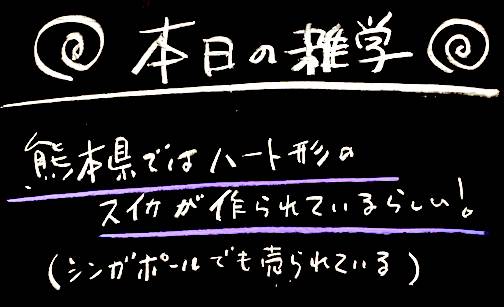 本日の雑学
熊本県ではハート形の
スイカが作られているらしい!
(シンガポールでも売られている)